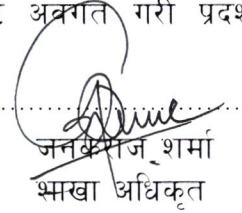 अवगत गरी प्रदश
....................
जनकराज शर्मा
शाखा अधिकृत